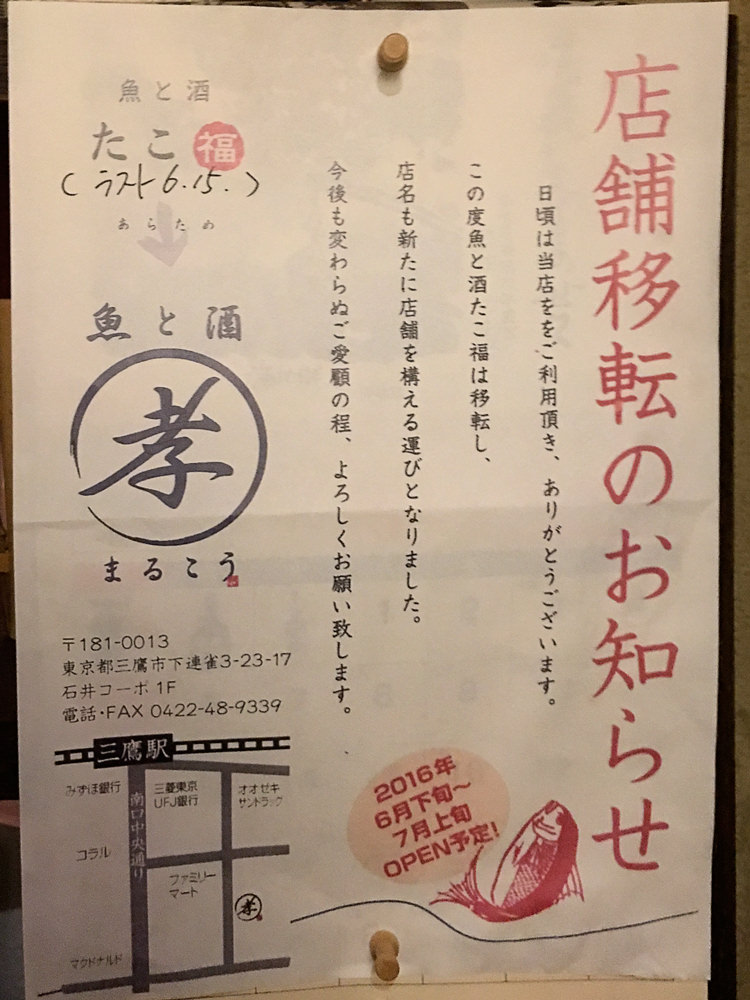 店舗移転のお知らせ
日頃は当店ををご利用頂き、ありがとうございます。
この度魚と酒たこ福は移転し、
店名も新たに店舗を構える運びとなりました。
今後も変わらぬご愛顧の程、よろしくお願い致します。
魚と酒
たこ福
(ラスト6.15.)
あらため
魚と酒
孝
まるこう
〒181-0013
東京都三鷹市下連雀3-23-17
石井コーポ 1F
電話・FAX 0422-48-9339
三鷹駅
みずほ銀行
三菱東京
UFJ銀行
オオゼキ
サントラック
南口中央通り
コラル
ファミリー
マート
孝
マクドナルド
2016年
6月下旬〜
7月上旬
OPEN予定!